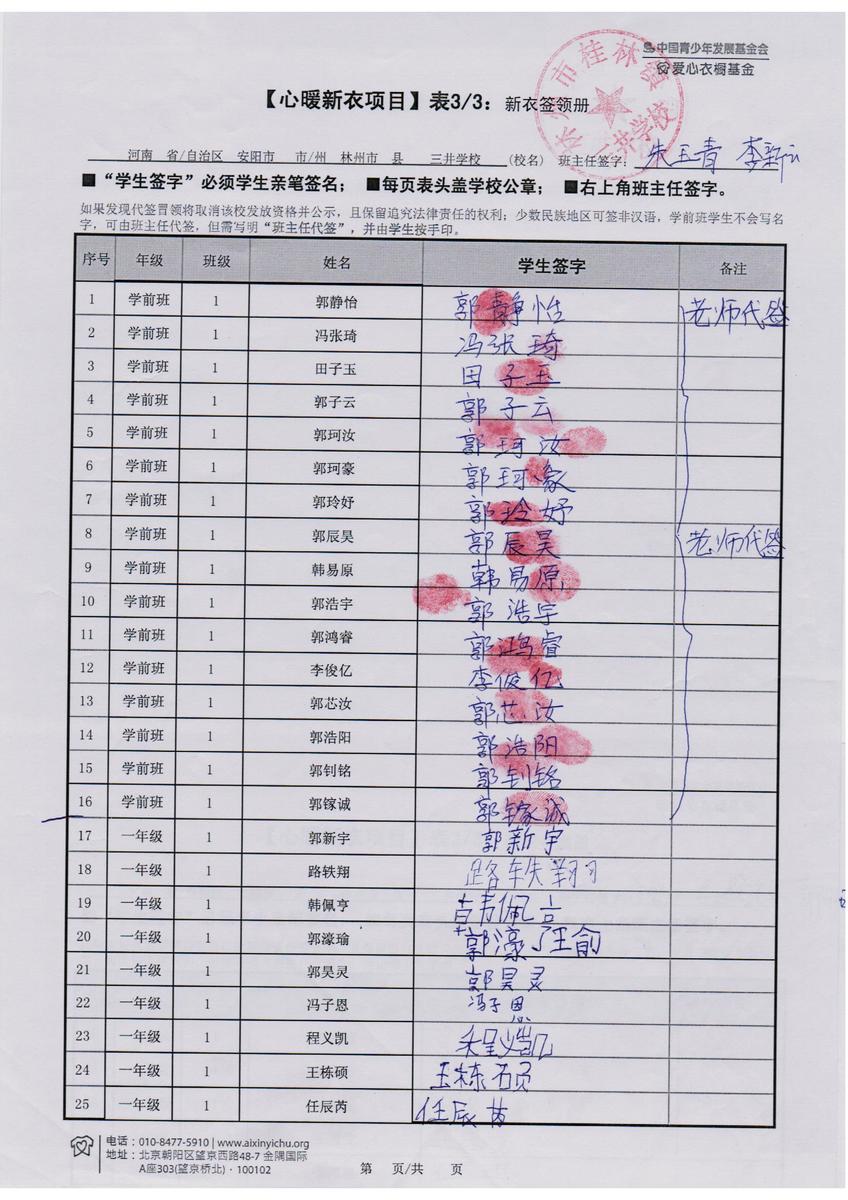 中国青少年发展基金会
爱心衣橱基金
林州市桂林镇
三井学校
【心暖新衣项目】表3/3：新衣签领册
河南 省/自治区 安阳市 市/州 林州市 县 三井学校 (校名) 班主任签字： 朱玉青 李新云
■“学生签字”必须学生亲笔签名； ■每页表头盖学校公章； ■右上角班主任签字。
如果发现代签冒领将取消该校发放资格并公示，且保留追究法律责任的权利；少数民族地区可签非汉语，学前班学生不会写名
字，可由班主任代签，但需写明“班主任代签”，并由学生按手印。
序号 年级 班级 姓名 学生签字 备注
1 学前班 1 郭静怡 郭静怡 老师代签
2 学前班 1 冯张琦 冯张琦
3 学前班 1 田子玉 田子玉
4 学前班 1 郭子云 郭子云
5 学前班 1 郭珂汝 郭珂汝
6 学前班 1 郭珂豪 郭珂豪
7 学前班 1 郭玲妤 郭玲妤
8 学前班 1 郭辰昊 郭辰昊 老师代签
9 学前班 1 韩易原 韩易原
10 学前班 1 郭浩宇 郭浩宇
11 学前班 1 郭鸿睿 郭鸿睿
12 学前班 1 李俊亿 李俊亿
13 学前班 1 郭芯汝 郭芯汝
14 学前班 1 郭浩阳 郭浩阳
15 学前班 1 郭钊铭 郭钊铭
16 学前班 1 郭镓诚 郭镓诚
17 一年级 1 郭新宇 郭新宇
18 一年级 1 路轶翔 路轶翔
19 一年级 1 韩佩亨 韩佩亨
20 一年级 1 郭濠瑜 郭濠瑜
21 一年级 1 郭昊灵 郭昊灵
22 一年级 1 冯子恩 冯子恩
23 一年级 1 程义凯 程义凯
24 一年级 1 王栋硕 王栋硕
25 一年级 1 任辰芮 任辰芮
电话：010-8477-5910 | www.aixinyichu.org
地址：北京朝阳区望京西路48-7 金隅国际
A座303(望京桥北)·100102
第 页/共 页